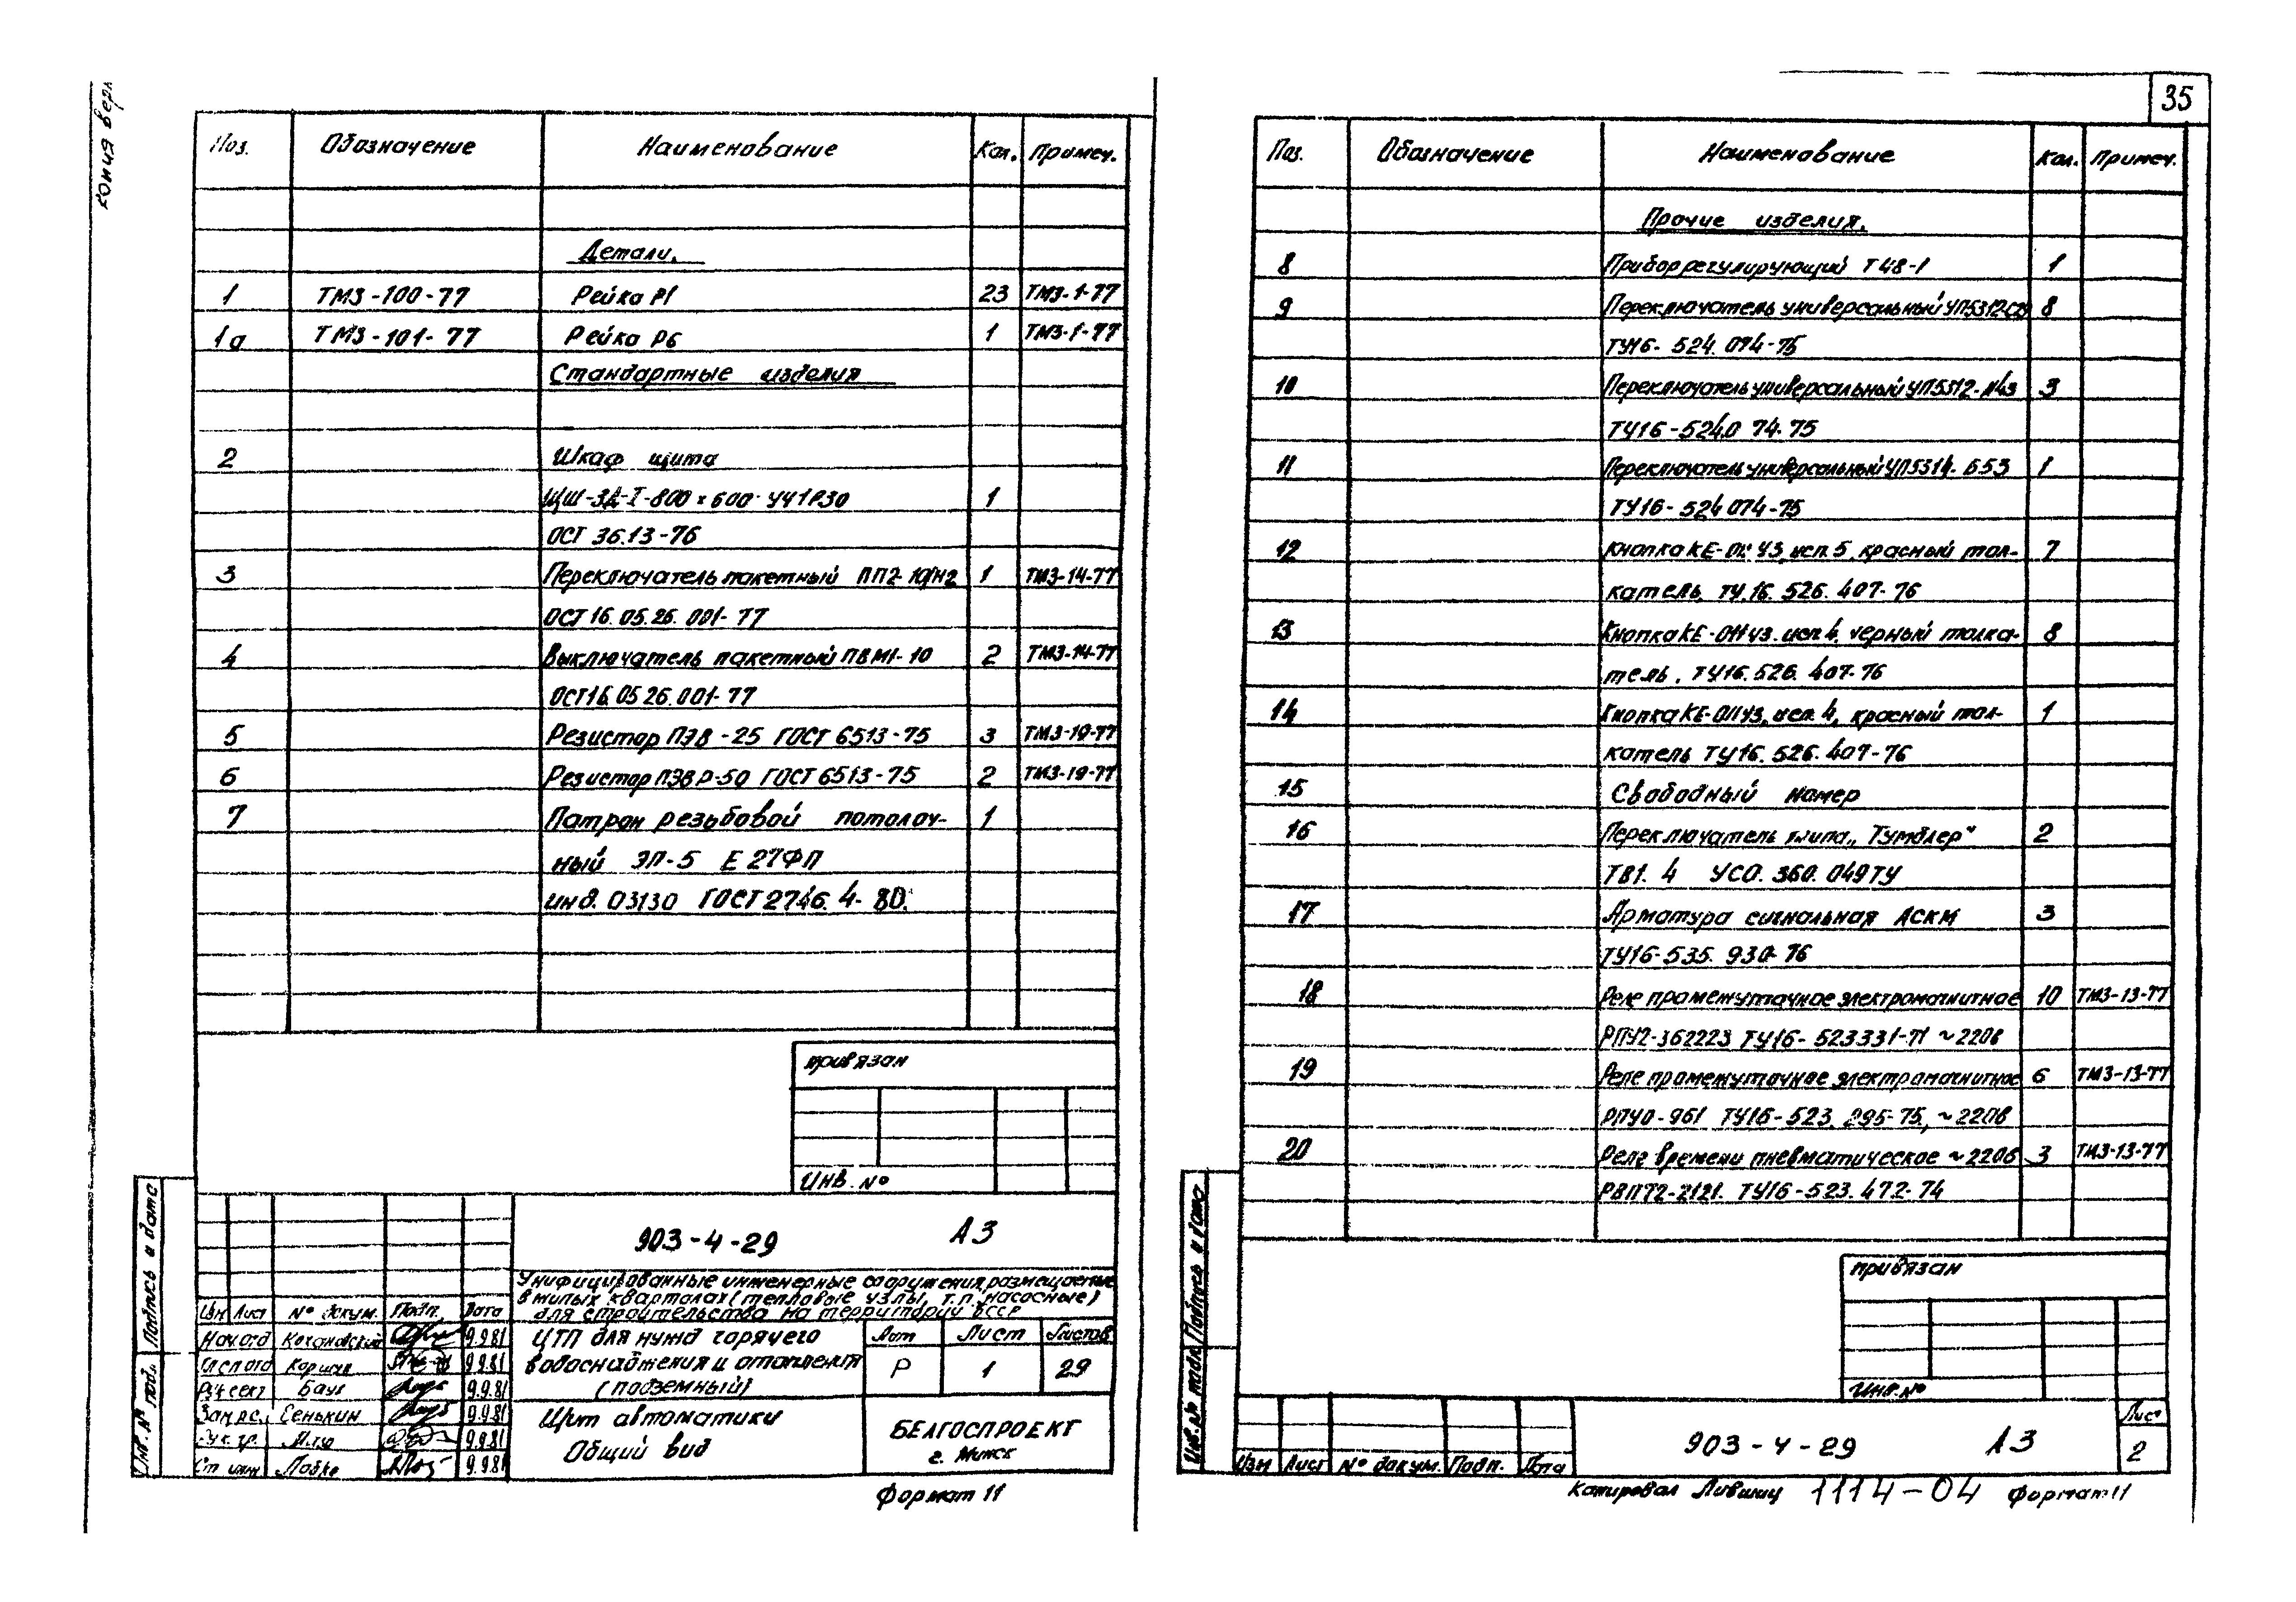 копия вер
Поз. Обозначение Наименование Кол. Примеч.
Детали.
1 ТМ3-100-77 Рейка Р1 23 ТМ3-1-77
1а ТМ3-101-77 Рейка Р6 1 ТМ3-1-77
Стандартные изделия
2 Шкаф щита
ЩШ-ЗД-I-800×600-УЧ1Р30 1
ОСТ 36.13-76
3 Переключатель пакетный ПП2-10/Н2 1 ТМ3-14-77
ОСТ 16.05.26.001-77
4 Выключатель пакетный ПВМ1-10 2 ТМ3-14-77
ОСТ16.05 26.001-77
5 Резистор ПЭВ-25 ГОСТ 6513-75 3 ТМ3-19-77
6 Резистор ПЭВР-50 ГОСТ 6513-75 2 ТМ3-19-77
7 Патрон резьбовой потолоч- 1
ный ЭП-5 Е27ФП
инд. 03130 ГОСТ 2746.4-80.
привязан
Инв. №
903-4-29 А3
Унифицированные инженерные сооружения, размещаемые
в жилых кварталах (тепловые узлы, т.п. насосные)
для строительства на территории БССР
Изм Лист № докум. Подп. Дата
Нач.отд Кохановский 9.9.81
Гл.сп.отд Коршун 9.9.81
Рук.сект Баух 9.9.81
Зам.рс. Сенькин 9.9.81
Рук.гр. 9.9.81
Ст инж Лобко 9.9.81
ЦТП для нужд горячего
водоснабжения и отопления
(подземный)
Лит Лист Листов
Р 1 29
Щит автоматики
Общий вид
БЕЛГОСПРОЕКТ
г. Минск
Формат 11
Подпись и дата
Инв. № подл.
35
Поз. Обозначение Наименование Кол. Примеч.
Прочие изделия.
8 Прибор регулирующий Т48-1 1
9 Переключатель универсальный УП5312-С29 8
ТУ16-524.074-75
10 Переключатель универсальный УП5312-Л43 3
ТУ16-524.0 74-75
11 Переключатель универсальный УП5314-Б53 1
ТУ16-524 074-75
12 Кнопка КЕ-011 У3, исп.5, красный тол- 7
катель, ТУ.16.526.407-76
13 Кнопка КЕ-011У3. исп 4, черный толка- 8
тель, ТУ16.526.407-76
14 Кнопка КЕ-011У3, исп. 4, красный тол- 1
катель ТУ16.526.407-76
15 Свободный номер
16 Переключатель типа „Тумблер" 2
ТВ1.4 УСО.360.049ТУ
17 Арматура сигнальная АСКМ 3
ТУ16-535.930-76
18 Реле промежуточное электромагнитное 10 ТМ3-13-77
РПУ2-362223 ТУ16-523331-71 ~220в
19 Реле промежуточное электромагнитное 6 ТМ3-13-77
РПУ0-961 ТУ16-523.295-75, ~220в
20 Реле времени пневматическое ~220в 3 ТМ3-13-77
РВП72-2121. ТУ16-523.472-74
привязан
Инв. №
Изм Лист № докум. Подп. Дата
903-4-29 А3
Лист
2
Инв. № подл. Подпись и дата
Копировал Лившиц 1114-04 Формат 11